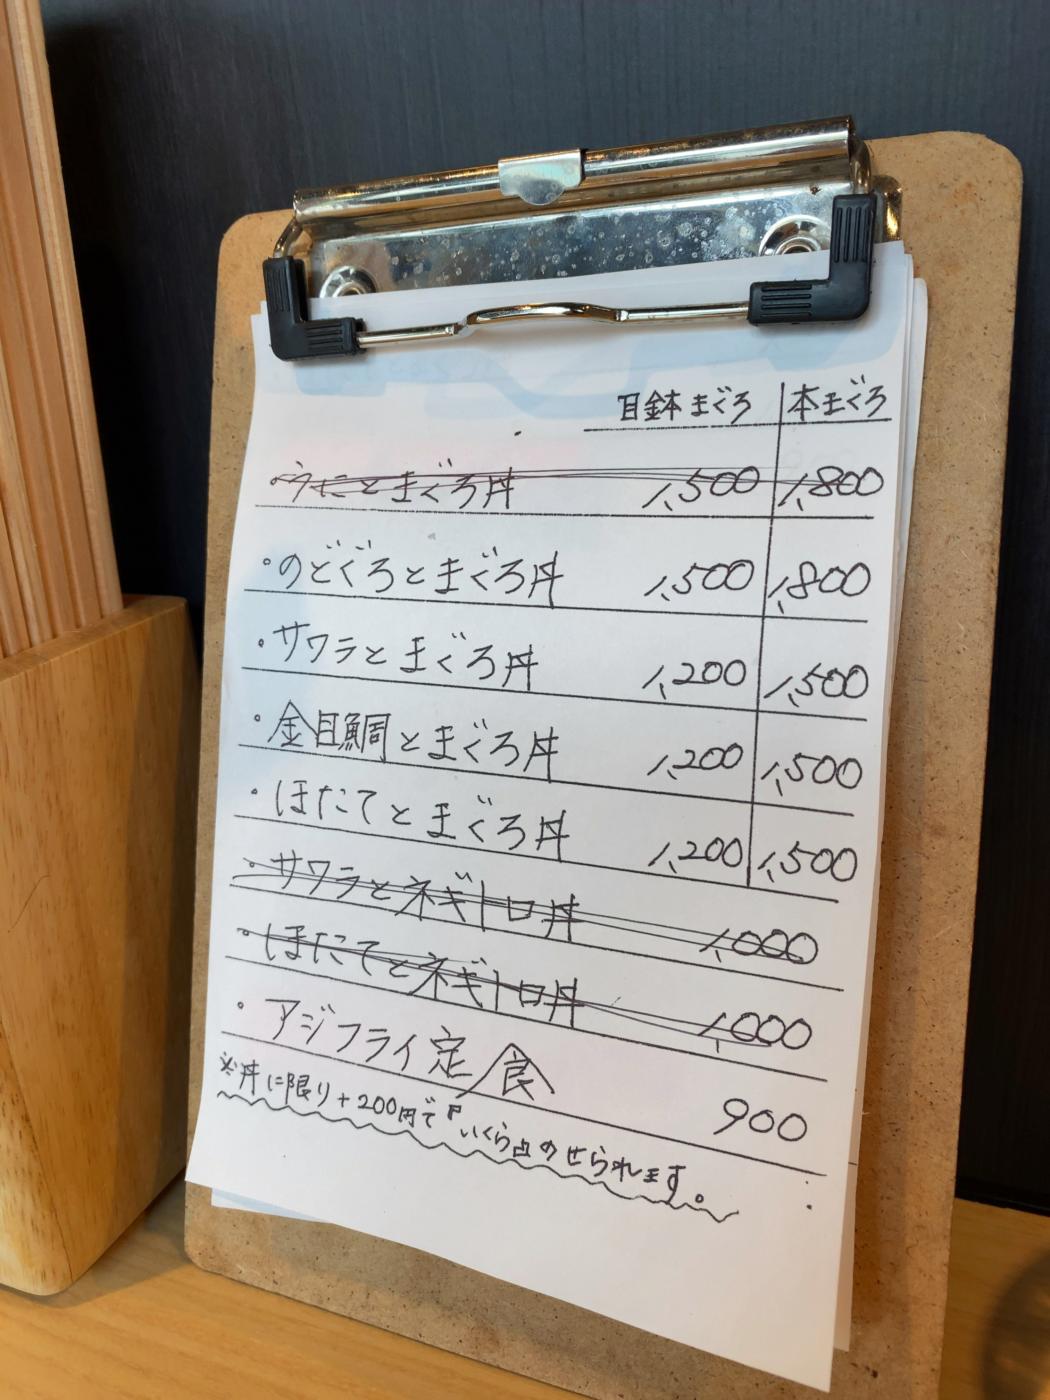 目鉢まぐろ 本まぐろ
・うにとまぐろ丼 1,500 1,800
・のどぐろとまぐろ丼 1,500 1,800
・サワラとまぐろ丼 1,200 1,500
・金目鯛とまぐろ丼 1,200 1,500
・ほたてとまぐろ丼 1,200 1,500
・サワラとネギトロ丼 1,000
・ほたてとネギトロ丼 1,000
・アジフライ定食 900
※丼に限り+200円で『いくら』のせられます。